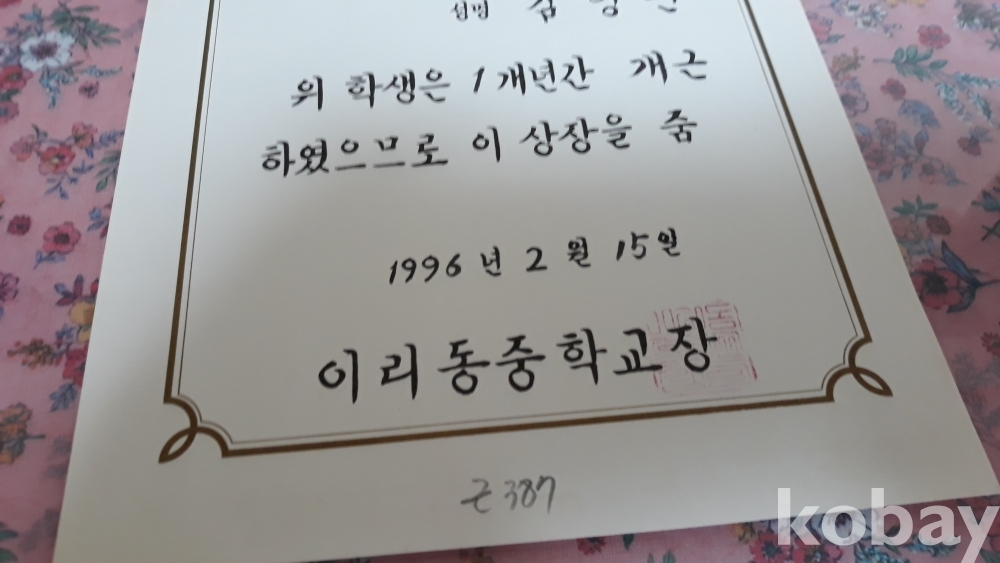 성명
위 학생은 1개년간 개근
하였으므로 이 상장을 줌
1996년 2월 15일
이리동중학교장
근387
kobay